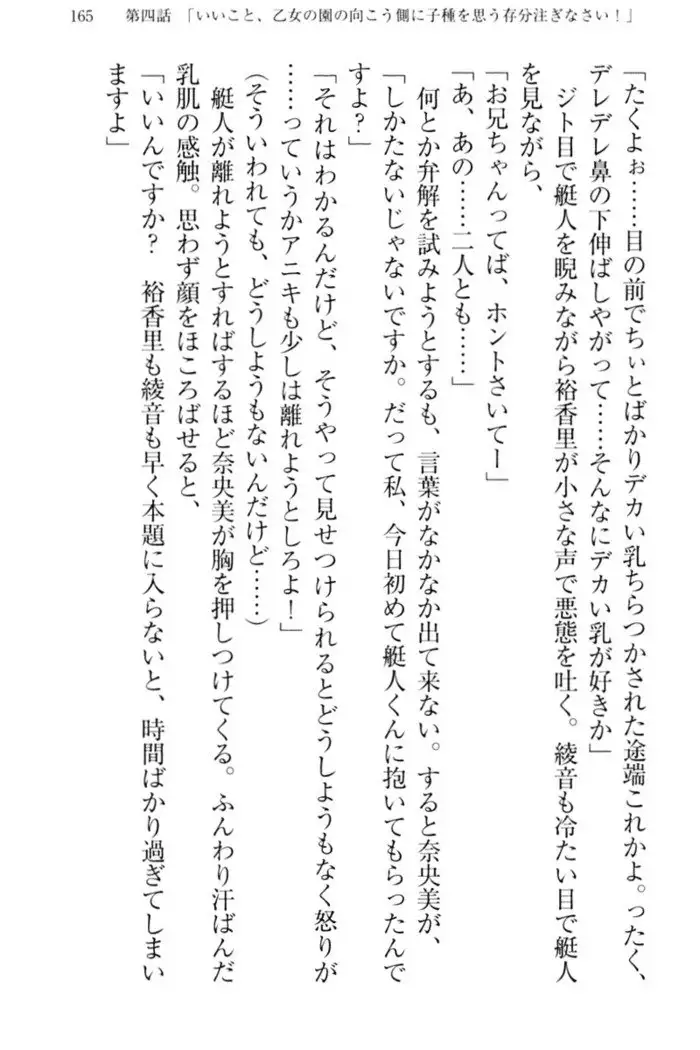 165　第四話　「いいこと、乙女の園の向こう側に子種を思う存分注ぎなさい！」
「たくよぉ……目の前でちぃとばかりデカい乳ちらつかされた途端これかよ。ったく、
デレデレ鼻の下伸ばしやがって……そんなにデカい乳が好きか」
　ジト目で艇人を睨みながら裕香里が小さな声で悪態を吐く。綾音も冷たい目で艇人
を見ながら、
「お兄ちゃんってば、ホントさいてー」
「あ、あの……二人とも……」
　何とか弁解を試みようとするも、言葉がなかなか出て来ない。すると奈央美が、
「しかたないじゃないですか。だって私、今日初めて艇人くんに抱いてもらったんで
すよ？」
「それはわかるんだけど、そうやって見せつけられるとどうしようもなく怒りが
……っていうかアニキも少しは離れようとしろよ！」
(そういわれても、どうしようもないんだけど……)
　艇人が離れようとすればするほど奈央美が胸を押しつけてくる。ふんわり汗ばんだ
乳肌の感触。思わず顔をほころばせると、
「いいんですか？　裕香里も綾音も早く本題に入らないと、時間ばかり過ぎてしまい
ますよ」